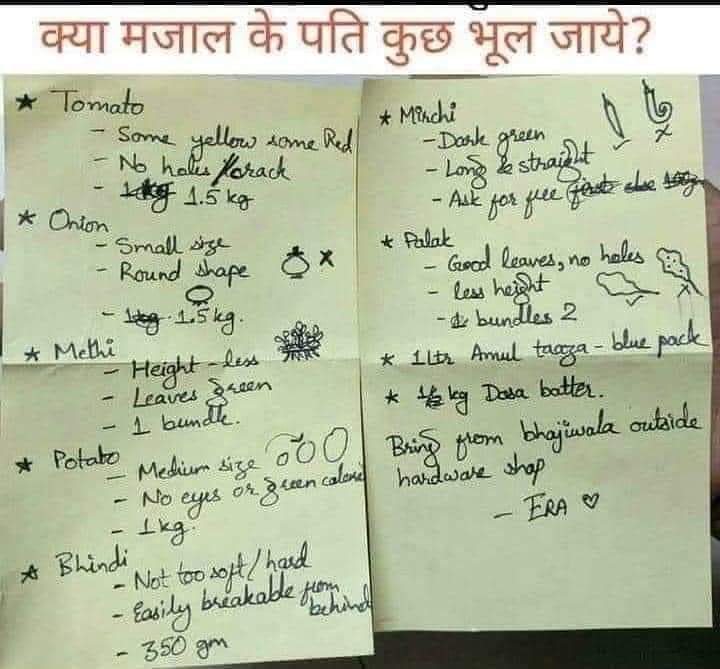 क्या मजाल के पति कुछ भूल जाये?
★ Tomato
- Some yellow some Red
- No holes / crack
- 1.5 kg
★ Onion
- Small size
- Round shape
- 1.5 kg.
★ Methi
- Height - less
- Leaves green
- 1 bundle.
★ Potato
- Medium size
- No eyes or green
- 1 kg.
★ Bhindi
- Not too soft / hard
- Easily breakable from
behind
- 350 gm
★ Mirchi
- Dark green
- Long & straight
- Ask for free
★ Palak
- Good leaves, no holes
- less height
- bundles 2
★ 1 Ltr Amul taaza - blue pack
★ kg Dosa batter.
Bring from bhajiwala outside
hardware shop
- ERA ♡